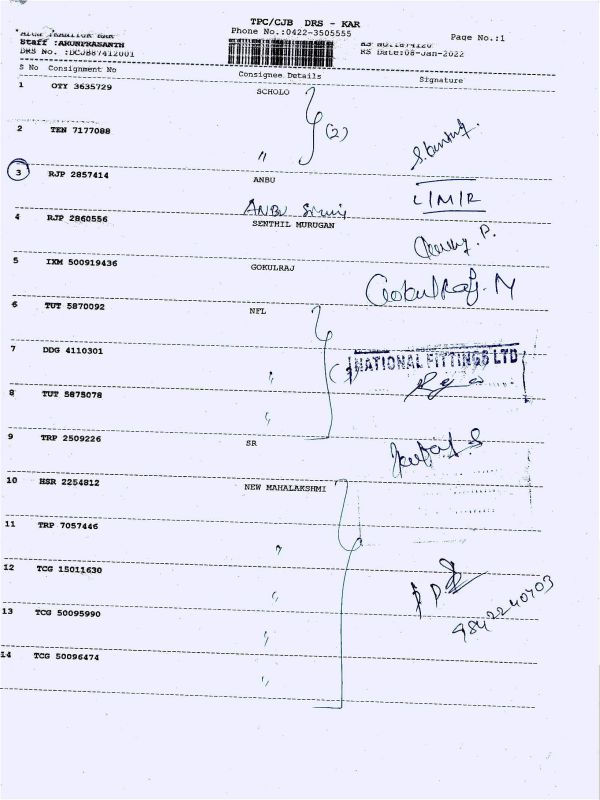 TPC/CJB DRS - KAR
Phone No.:0422-3505555
Page No.:1
Staff :ARUNPRASANTH
DRS No. :DCJB87412001
RS Date:08-Jan-2022
S No Consignment No Consignee Details Signature
1 OTY 3635729 SCHOLO
(2)
2 TEN 7177088 "
3 RJP 2857414 ANBU
L/M/R
ANBU
4 RJP 2860556 SENTHIL MURUGAN
5 IXM 500919436 GOKULRAJ
GokulRaj. M
6 TUT 5870092 NFL
7 DDG 4110301 "
NATIONAL FITTINGS LTD
8 TUT 5875078 "
9 TRP 2509226 SR
10 HSR 2254812 NEW MAHALAKSHMI
11 TRP 7057446 "
12 TCG 15011630 "
13 TCG 50095990 "
14 TCG 50096474 "